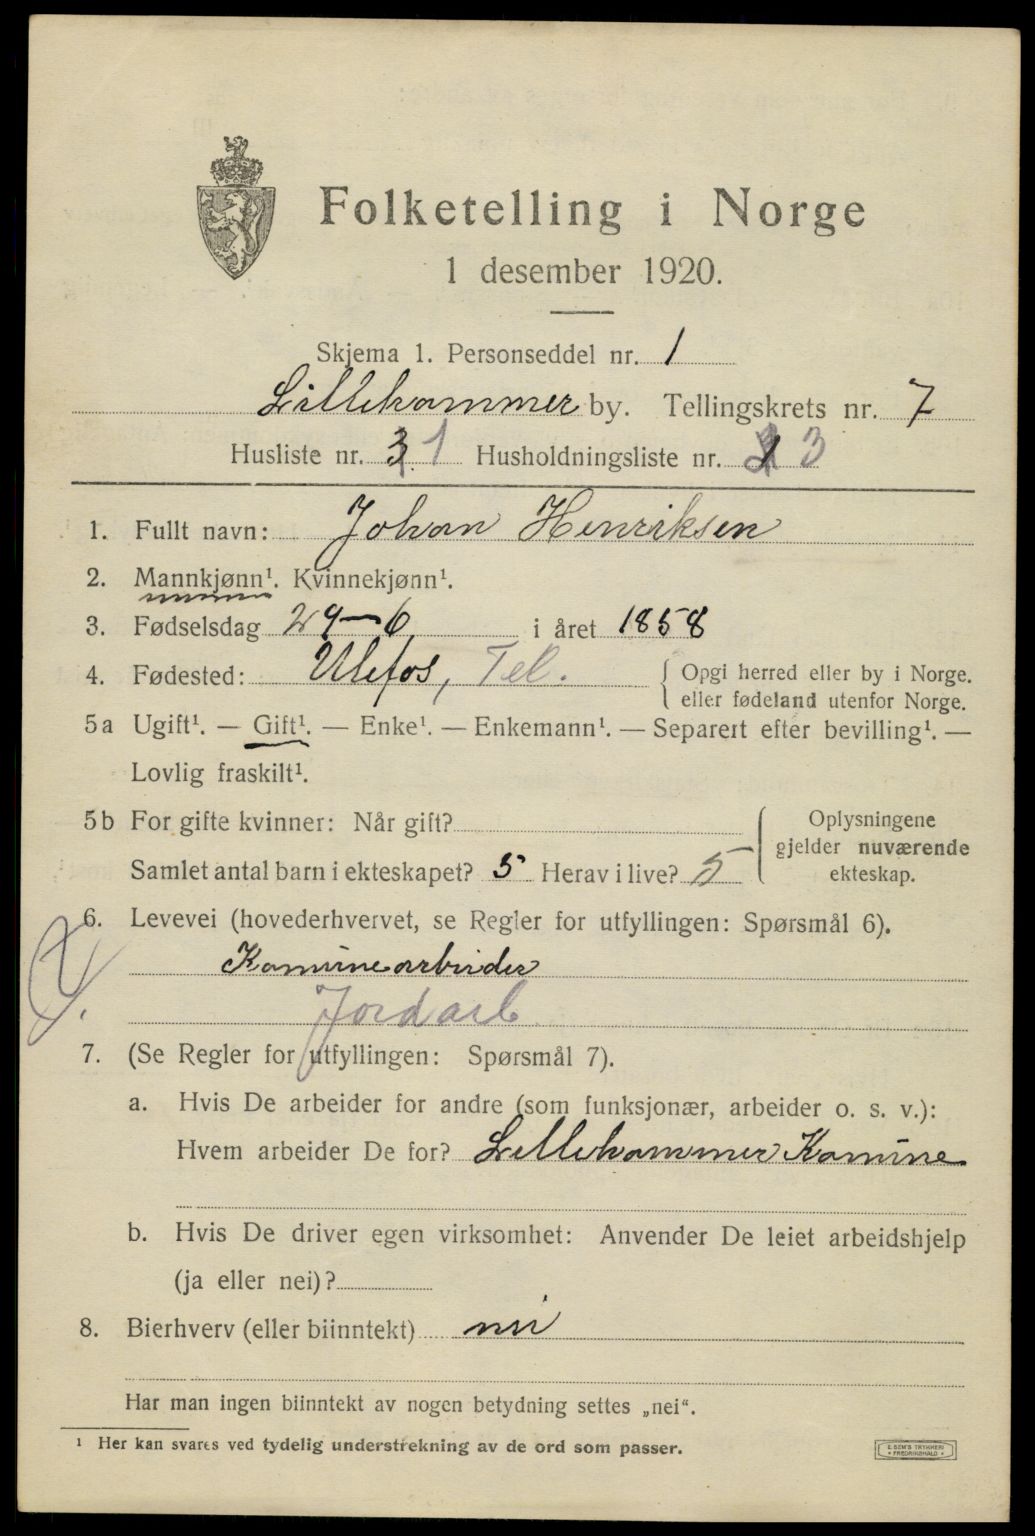 Folketelling i Norge
1 desember 1920.
Skjema 1. Personseddel nr. 1
Lillehammer by. Tellingskrets nr. 7
Husliste nr. 3 1 Husholdningsliste nr. 3
1. Fullt navn: Johan Henriksen
2. Mannkjønn¹. Kvinnekjønn¹.
3. Fødselsdag 29–6 i året 1858
4. Fødested: Ulefos, Tel. Opgi herred eller by i Norge.
eller fødeland utenfor Norge.
5a Ugift¹. — Gift¹. — Enke¹. — Enkemann¹. — Separert efter bevilling¹. —
Lovlig fraskilt¹.
5b For gifte kvinner: Når gift? Oplysningene
gjelder nuværende
ekteskap.
Samlet antal barn i ekteskapet? 5 Herav i live? 5
6. Levevei (hovederhvervet, se Regler for utfyllingen: Spørsmål 6).
Komunearbeider
Jordarb
7. (Se Regler for utfyllingen: Spørsmål 7).
a. Hvis De arbeider for andre (som funksjonær, arbeider o. s. v.):
Hvem arbeider De for? Lillehammer Komune
b. Hvis De driver egen virksomhet: Anvender De leiet arbeidshjelp
(ja eller nei)?
8. Bierhverv (eller biinntekt) nei
Har man ingen biinntekt av nogen betydning settes „nei“.
¹ Her kan svares ved tydelig understrekning av de ord som passer.
E. SEM'S TRYKKERI
FREDRIKSHALD